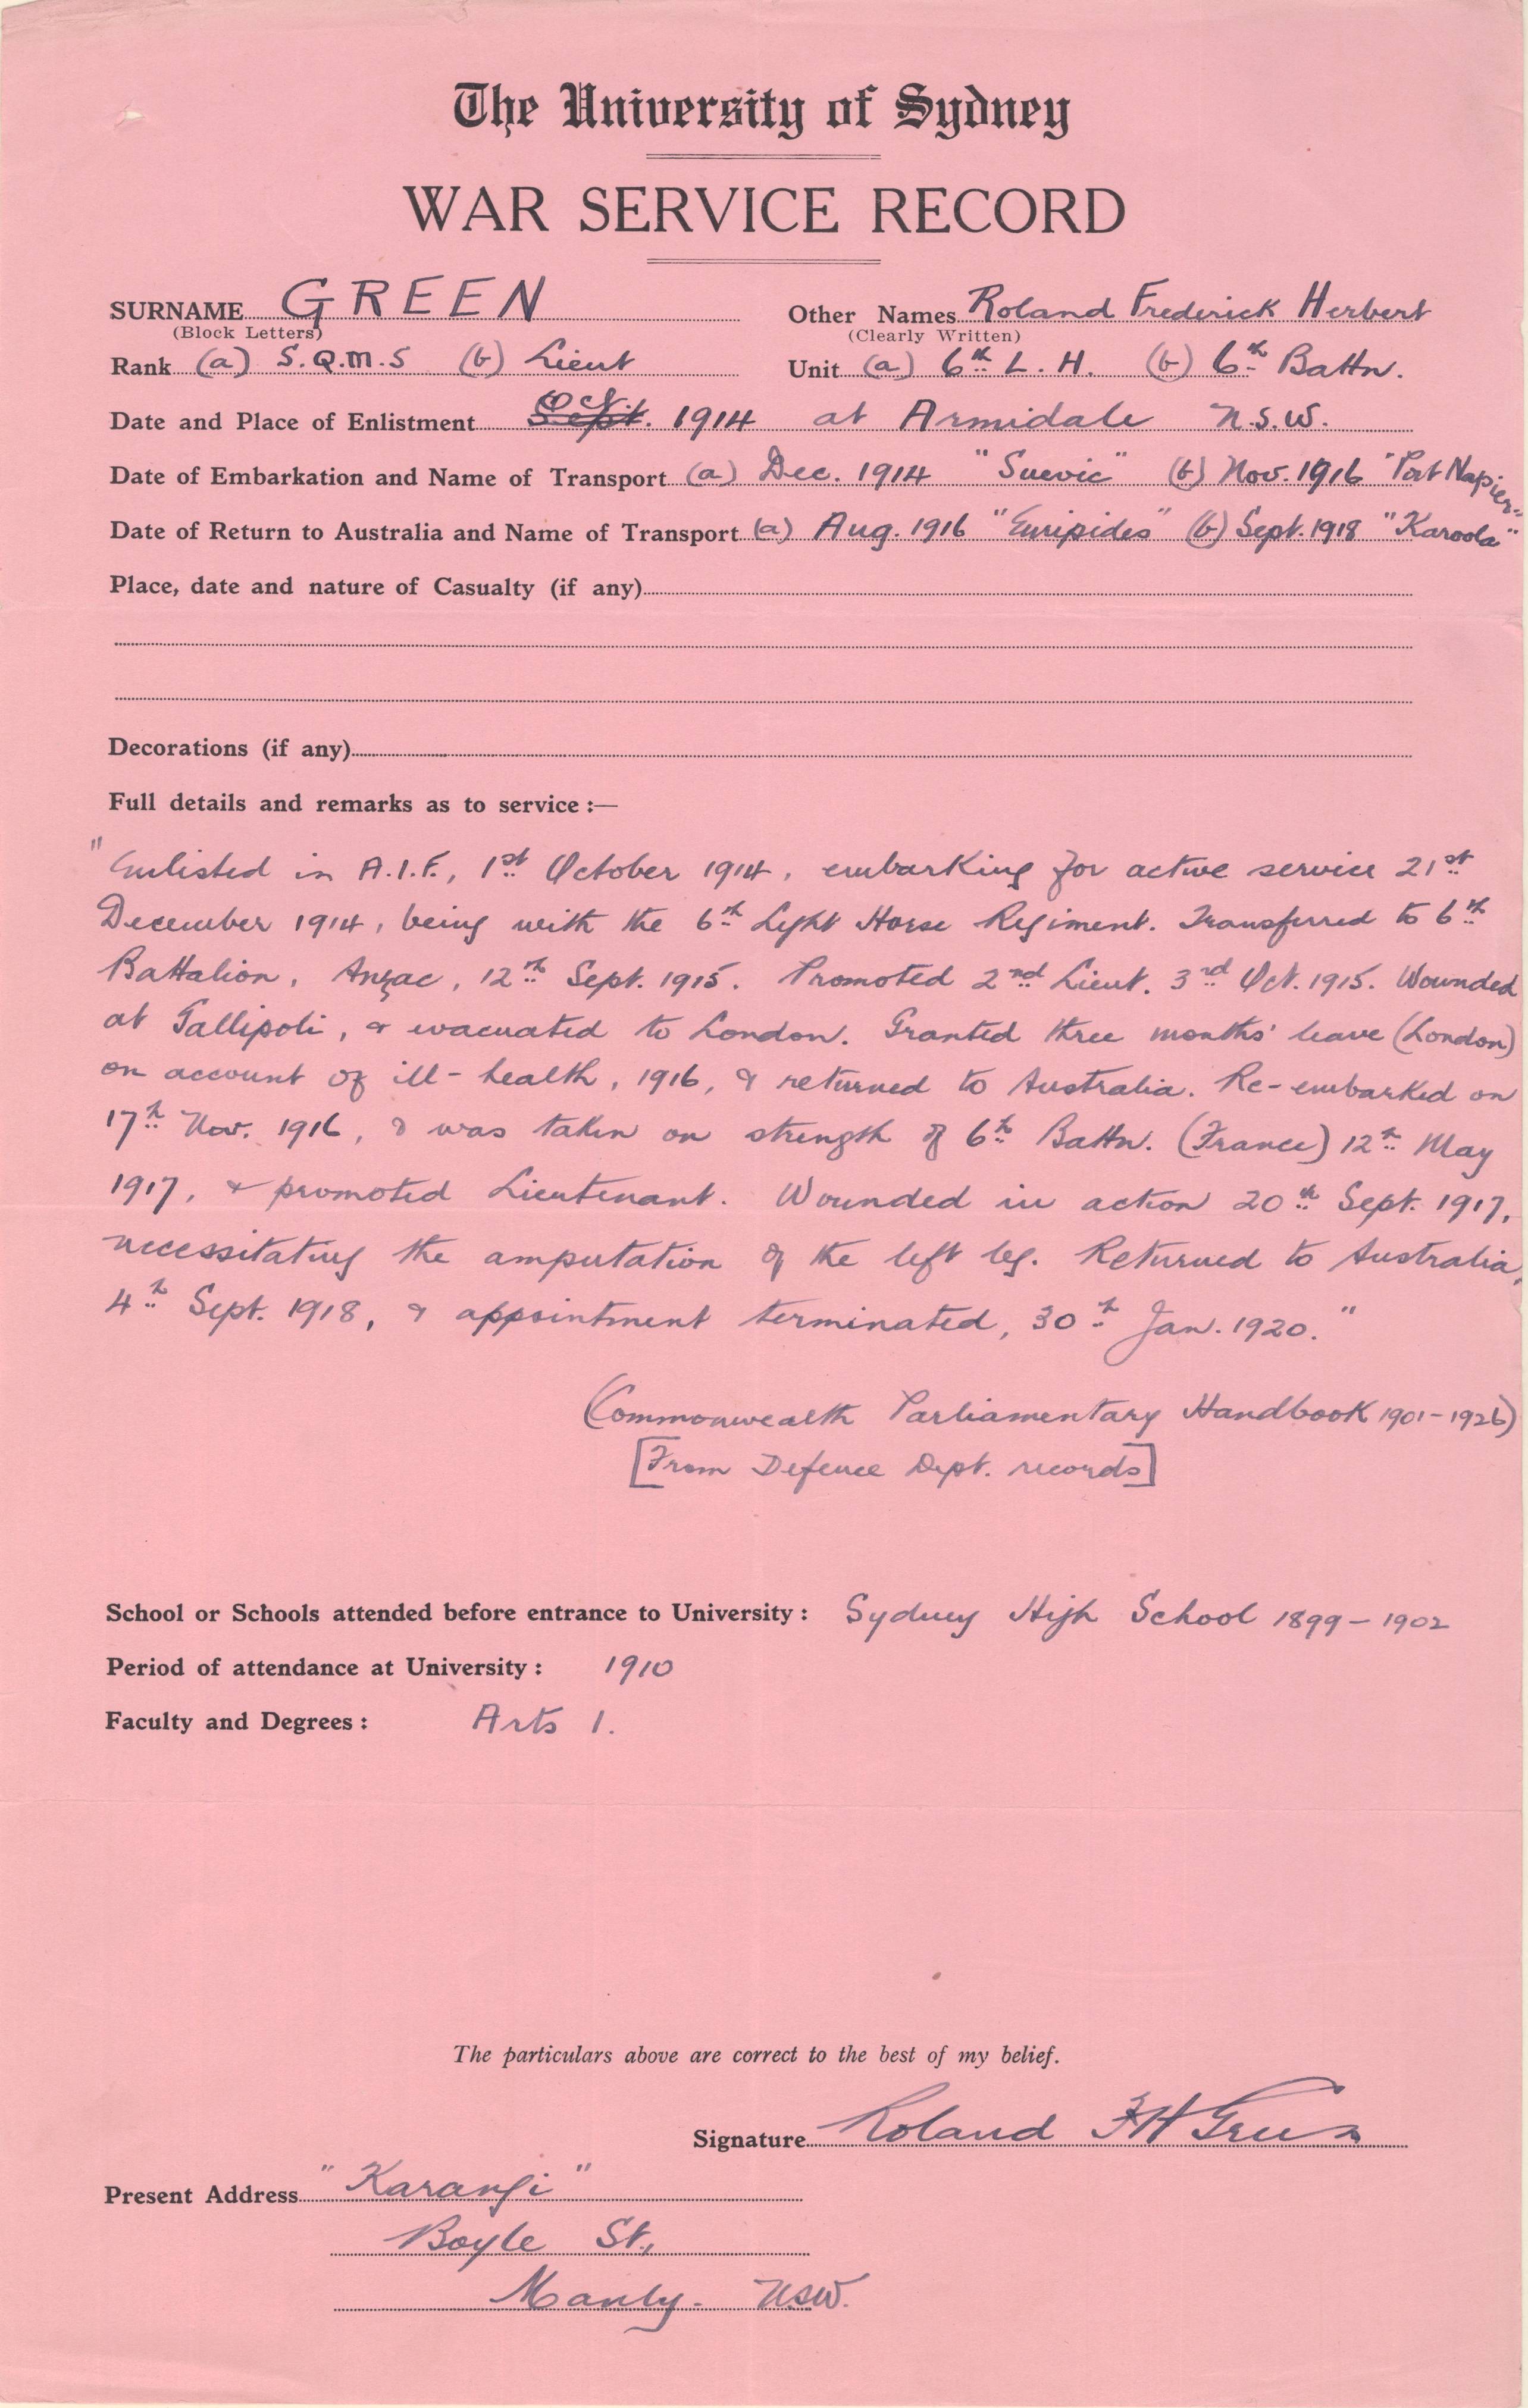 The University of Sydney
WAR SERVICE RECORD
SURNAME GREEN Other Names Roland Frederick Herbert
(Block Letters) (Clearly Written)
Rank (a) S.Q.M.S (b) Lieut Unit (a) 6th L. H. (b) 6th Battn.
Date and Place of Enlistment Sept. Oct 1914 at Armidale N.S.W.
Date of Embarkation and Name of Transport (a) Dec. 1914 "Suevic" (b) Nov. 1916 "Port Napier"
Date of Return to Australia and Name of Transport (a) Aug. 1916 "Euripides" (b) Sept. 1918 "Karoola"
Place, date and nature of Casualty (if any)
Decorations (if any)
Full details and remarks as to service :—
"Enlisted in A.I.F., 1st October 1914, embarking for active service 21st
December 1914, being with the 6th Light Horse Regiment. Transferred to 6th
Battalion, Anzac, 12th Sept. 1915. Promoted 2nd Lieut. 3rd Oct. 1915. Wounded
at Gallipoli, & evacuated to London. Granted three months' leave (London)
on account of ill-health, 1916, & returned to Australia. Re-embarked on
17th Nov. 1916, & was taken on strength of 6th Battn. (France) 12th May
1917, & promoted Lieutenant. Wounded in action 20th Sept. 1917,
necessitating the amputation of the left leg. Returned to Australia,
4th Sept. 1918, & appointment terminated, 30th Jan. 1920."
(Commonwealth Parliamentary Handbook 1901-1926)
[From Defence Dept. records]
School or Schools attended before entrance to University : Sydney High School 1899-1902
Period of attendance at University : 1910
Faculty and Degrees : Arts 1.
The particulars above are correct to the best of my belief.
Signature Roland F H Green
Present Address "Karangi"
Boyle St.,
Manly. N.S.W.